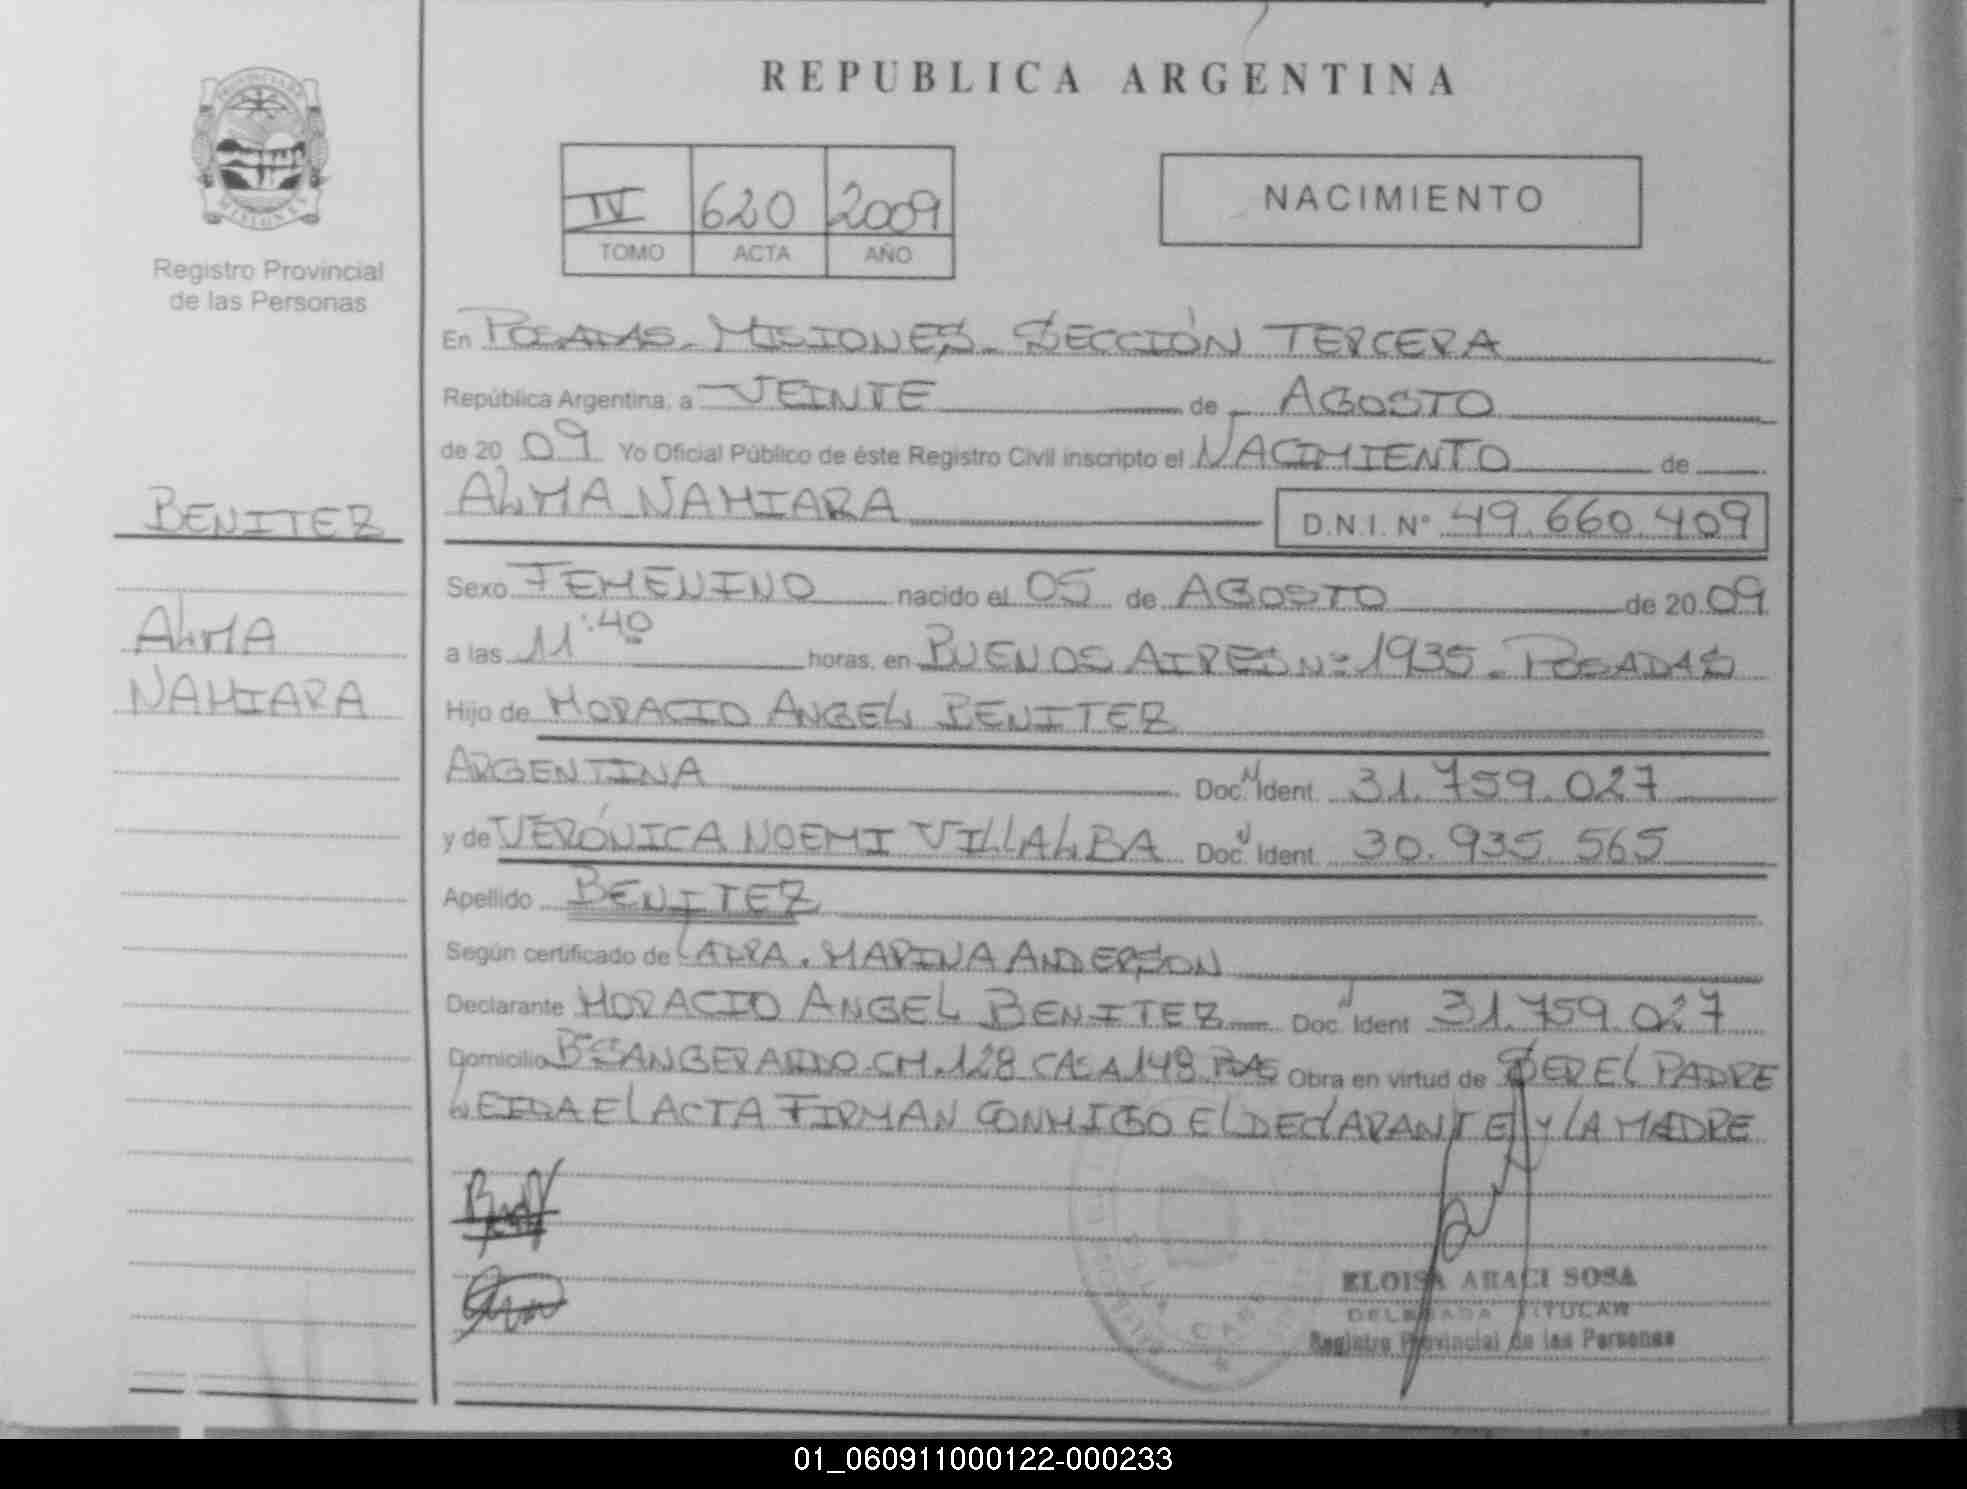 REPUBLICA ARGENTINA
PROVINCIA DE
MISIONES
Registro Provincial
de las Personas
IV 620 2009
TOMO ACTA AÑO
NACIMIENTO
En POSADAS - MISIONES - SECCIÓN TERCERA
República Argentina, a VEINTE de AGOSTO
de 20 09 Yo Oficial Público de éste Registro Civil inscripto el NACIMIENTO de
ALMA NAHIARA D.N.I. Nº 49.660.409
BENITEZ
ALMA
NAHIARA
Sexo FEMENINO nacido el 05 de AGOSTO de 20 09
a las 11:40 horas, en BUENOS AIRES Nº 1935 - POSADAS
Hijo de HORACIO ANGEL BENITEZ
ARGENTINA Doc. N Ident. 31.759.027
y de VERÓNICA NOEMI VILLALBA Doc. N Ident. 30.935.565
Apellido BENITEZ
Según certificado de MARINA ANDERSON
Declarante HORACIO ANGEL BENITEZ Doc. N Ident. 31.759.027
Domicilio Bº SAN GERARDO - CH. 128 CASA 148 PDAS Obra en virtud de SER EL PADRE
LEIDA EL ACTA FIRMAN CONMIGO EL DECLARANTE Y LA MADRE
ELOISA ARACI SOSA
DELEGADA TITULAR
Registro Provincial de las Personas
01_060911000122-000233